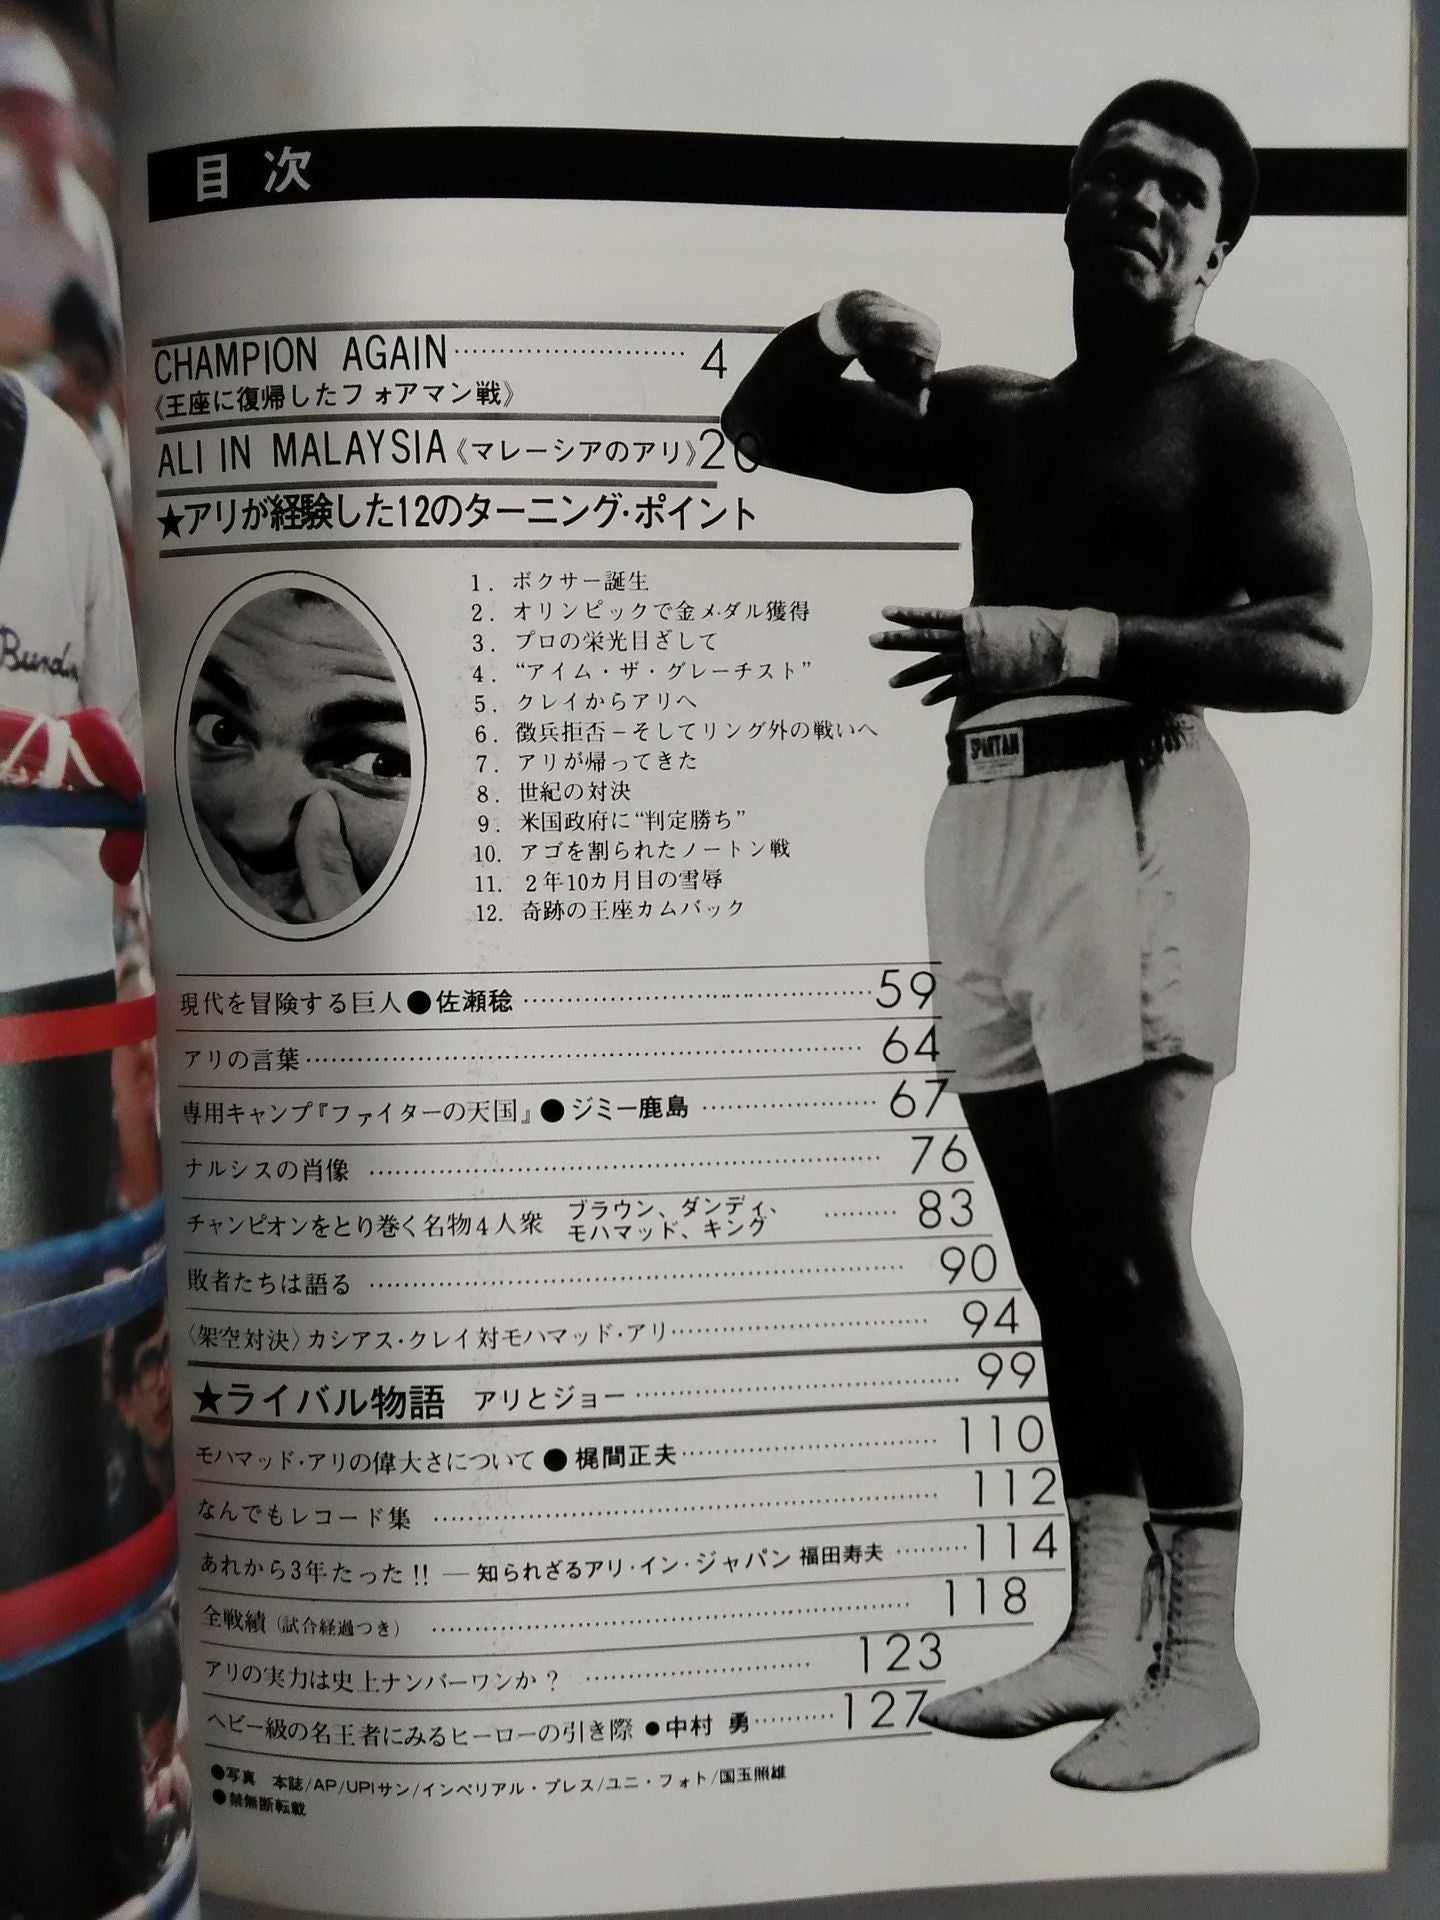 目次
CHAMPION AGAIN ………………………… 4
《王座に復帰したフォアマン戦》
ALI IN MALAYSIA《マレーシアのアリ》20
★アリが経験した12のターニング・ポイント
1. ボクサー誕生
2. オリンピックで金メダル獲得
3. プロの栄光目ざして
4. “アイム・ザ・グレーチスト”
5. クレイからアリへ
6. 徴兵拒否－そしてリング外の戦いへ
7. アリが帰ってきた
8. 世紀の対決
9. 米国政府に“判定勝ち”
10. アゴを割られたノートン戦
11. 2年10カ月目の雪辱
12. 奇跡の王座カムバック
現代を冒険する巨人●佐瀬稔 ………………………… 59
アリの言葉 ………………………… 64
専用キャンプ『ファイターの天国』●ジミー鹿島 ………………… 67
ナルシスの肖像 ………………………… 76
チャンピオンをとり巻く名物4人衆 ブラウン、ダンディ、
モハマッド、キング ……… 83
敗者たちは語る ………………………… 90
〈架空対決〉カシアス・クレイ対モハマッド・アリ ………………… 94
★ライバル物語 アリとジョー ………………………… 99
モハマッド・アリの偉大さについて●梶間正夫 ………………… 110
なんでもレコード集 ………………………… 112
あれから3年たった!! ―知られざるアリ・イン・ジャパン 福田寿夫 ……… 114
全戦績（試合経過つき） ………………………… 118
アリの実力は史上ナンバーワンか? ………………… 123
ヘビー級の名王者にみるヒーローの引き際●中村 勇 ……… 127
●写真 本誌/AP/UPIサン/インペリアル・プレス/ユニ・フォト/国玉照雄
●禁無断転載
SPARTAN